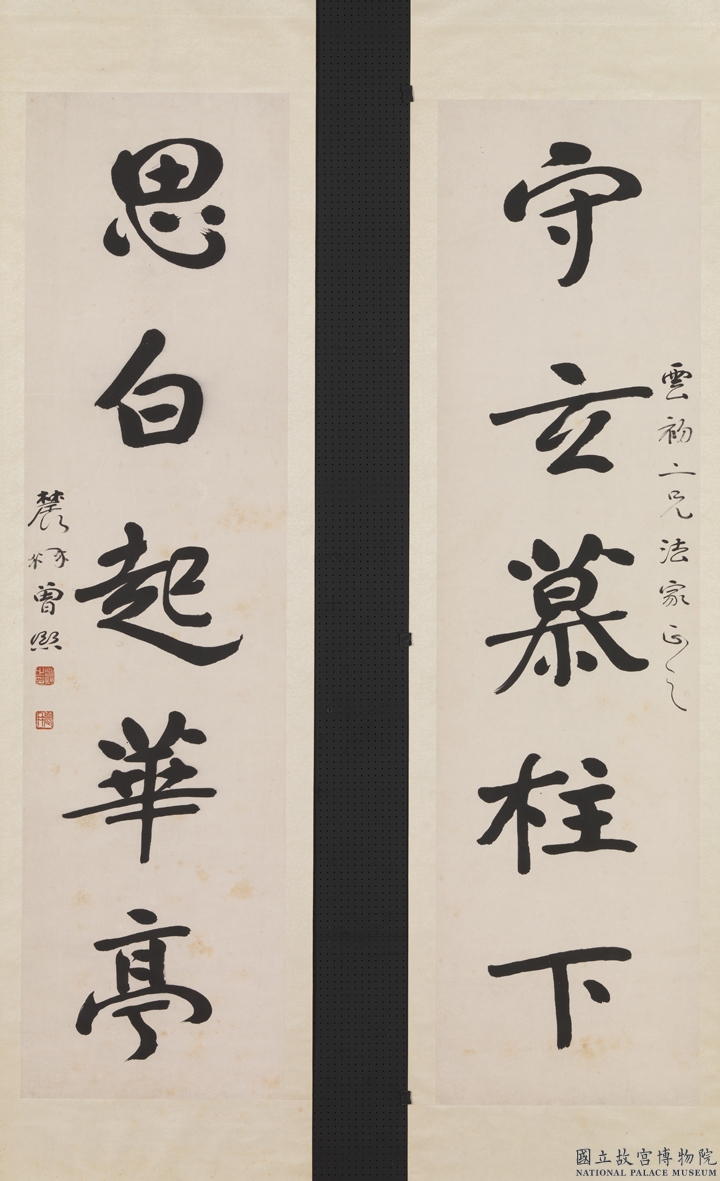 守玄慕柱下
雲初二兄法家正之
思白起華亭
農髯曾熙
國立故宮博物院
NATIONAL PALACE MUSEUM